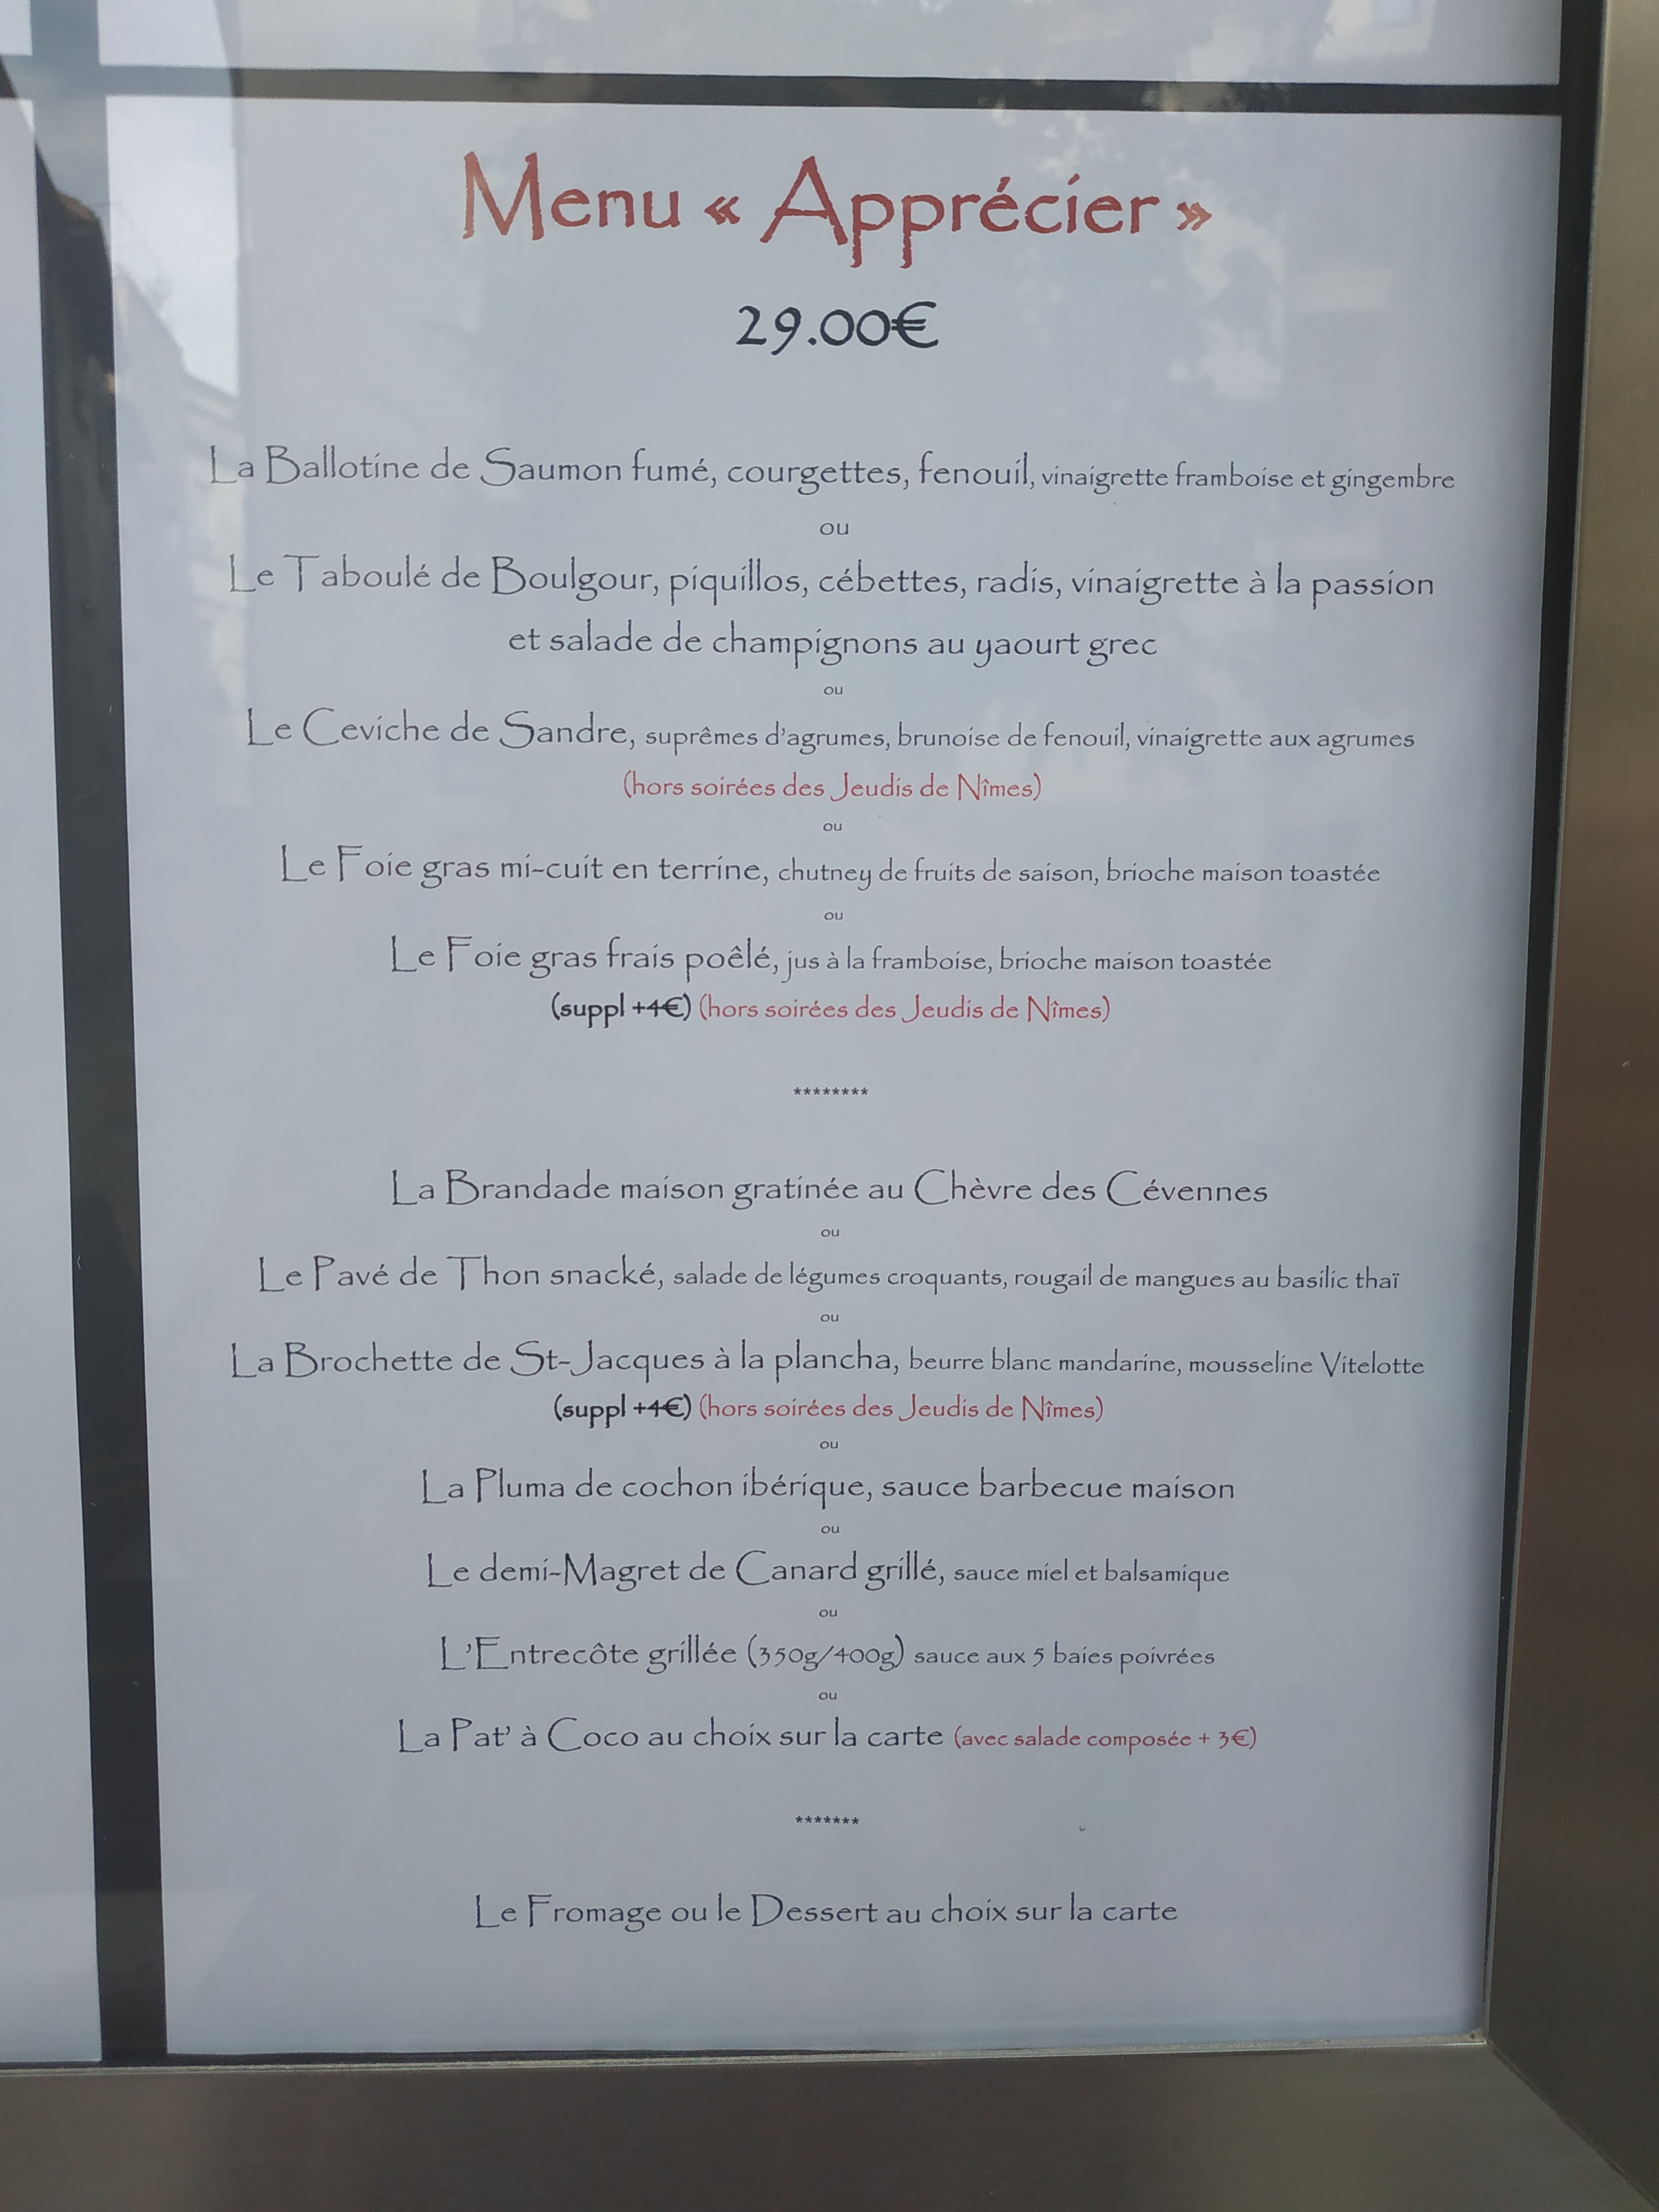 Menu « Apprécier »
29.00€
La Ballotine de Saumon fumé, courgettes, fenouil, vinaigrette framboise et gingembre
ou
Le Taboulé de Boulgour, piquillos, cébettes, radis, vinaigrette à la passion
et salade de champignons au yaourt grec
ou
Le Ceviche de Sandre, suprêmes d'agrumes, brunoise de fenouil, vinaigrette aux agrumes
(hors soirées des Jeudis de Nîmes)
ou
Le Foie gras mi-cuit en terrine, chutney de fruits de saison, brioche maison toastée
ou
Le Foie gras frais poêlé, jus à la framboise, brioche maison toastée
(suppl +4€) (hors soirées des Jeudis de Nîmes)
********
La Brandade maison gratinée au Chèvre des Cévennes
ou
Le Pavé de Thon snacké, salade de légumes croquants, rougail de mangues au basilic thaï
ou
La Brochette de St-Jacques à la plancha, beurre blanc mandarine, mousseline Vitelotte
(suppl +4€) (hors soirées des Jeudis de Nîmes)
ou
La Pluma de cochon ibérique, sauce barbecue maison
ou
Le demi-Magret de Canard grillé, sauce miel et balsamique
ou
L'Entrecôte grillée (350g/400g) sauce aux 5 baies poivrées
ou
La Pat' à Coco au choix sur la carte (avec salade composée + 3€)
*******
Le Fromage ou le Dessert au choix sur la carte